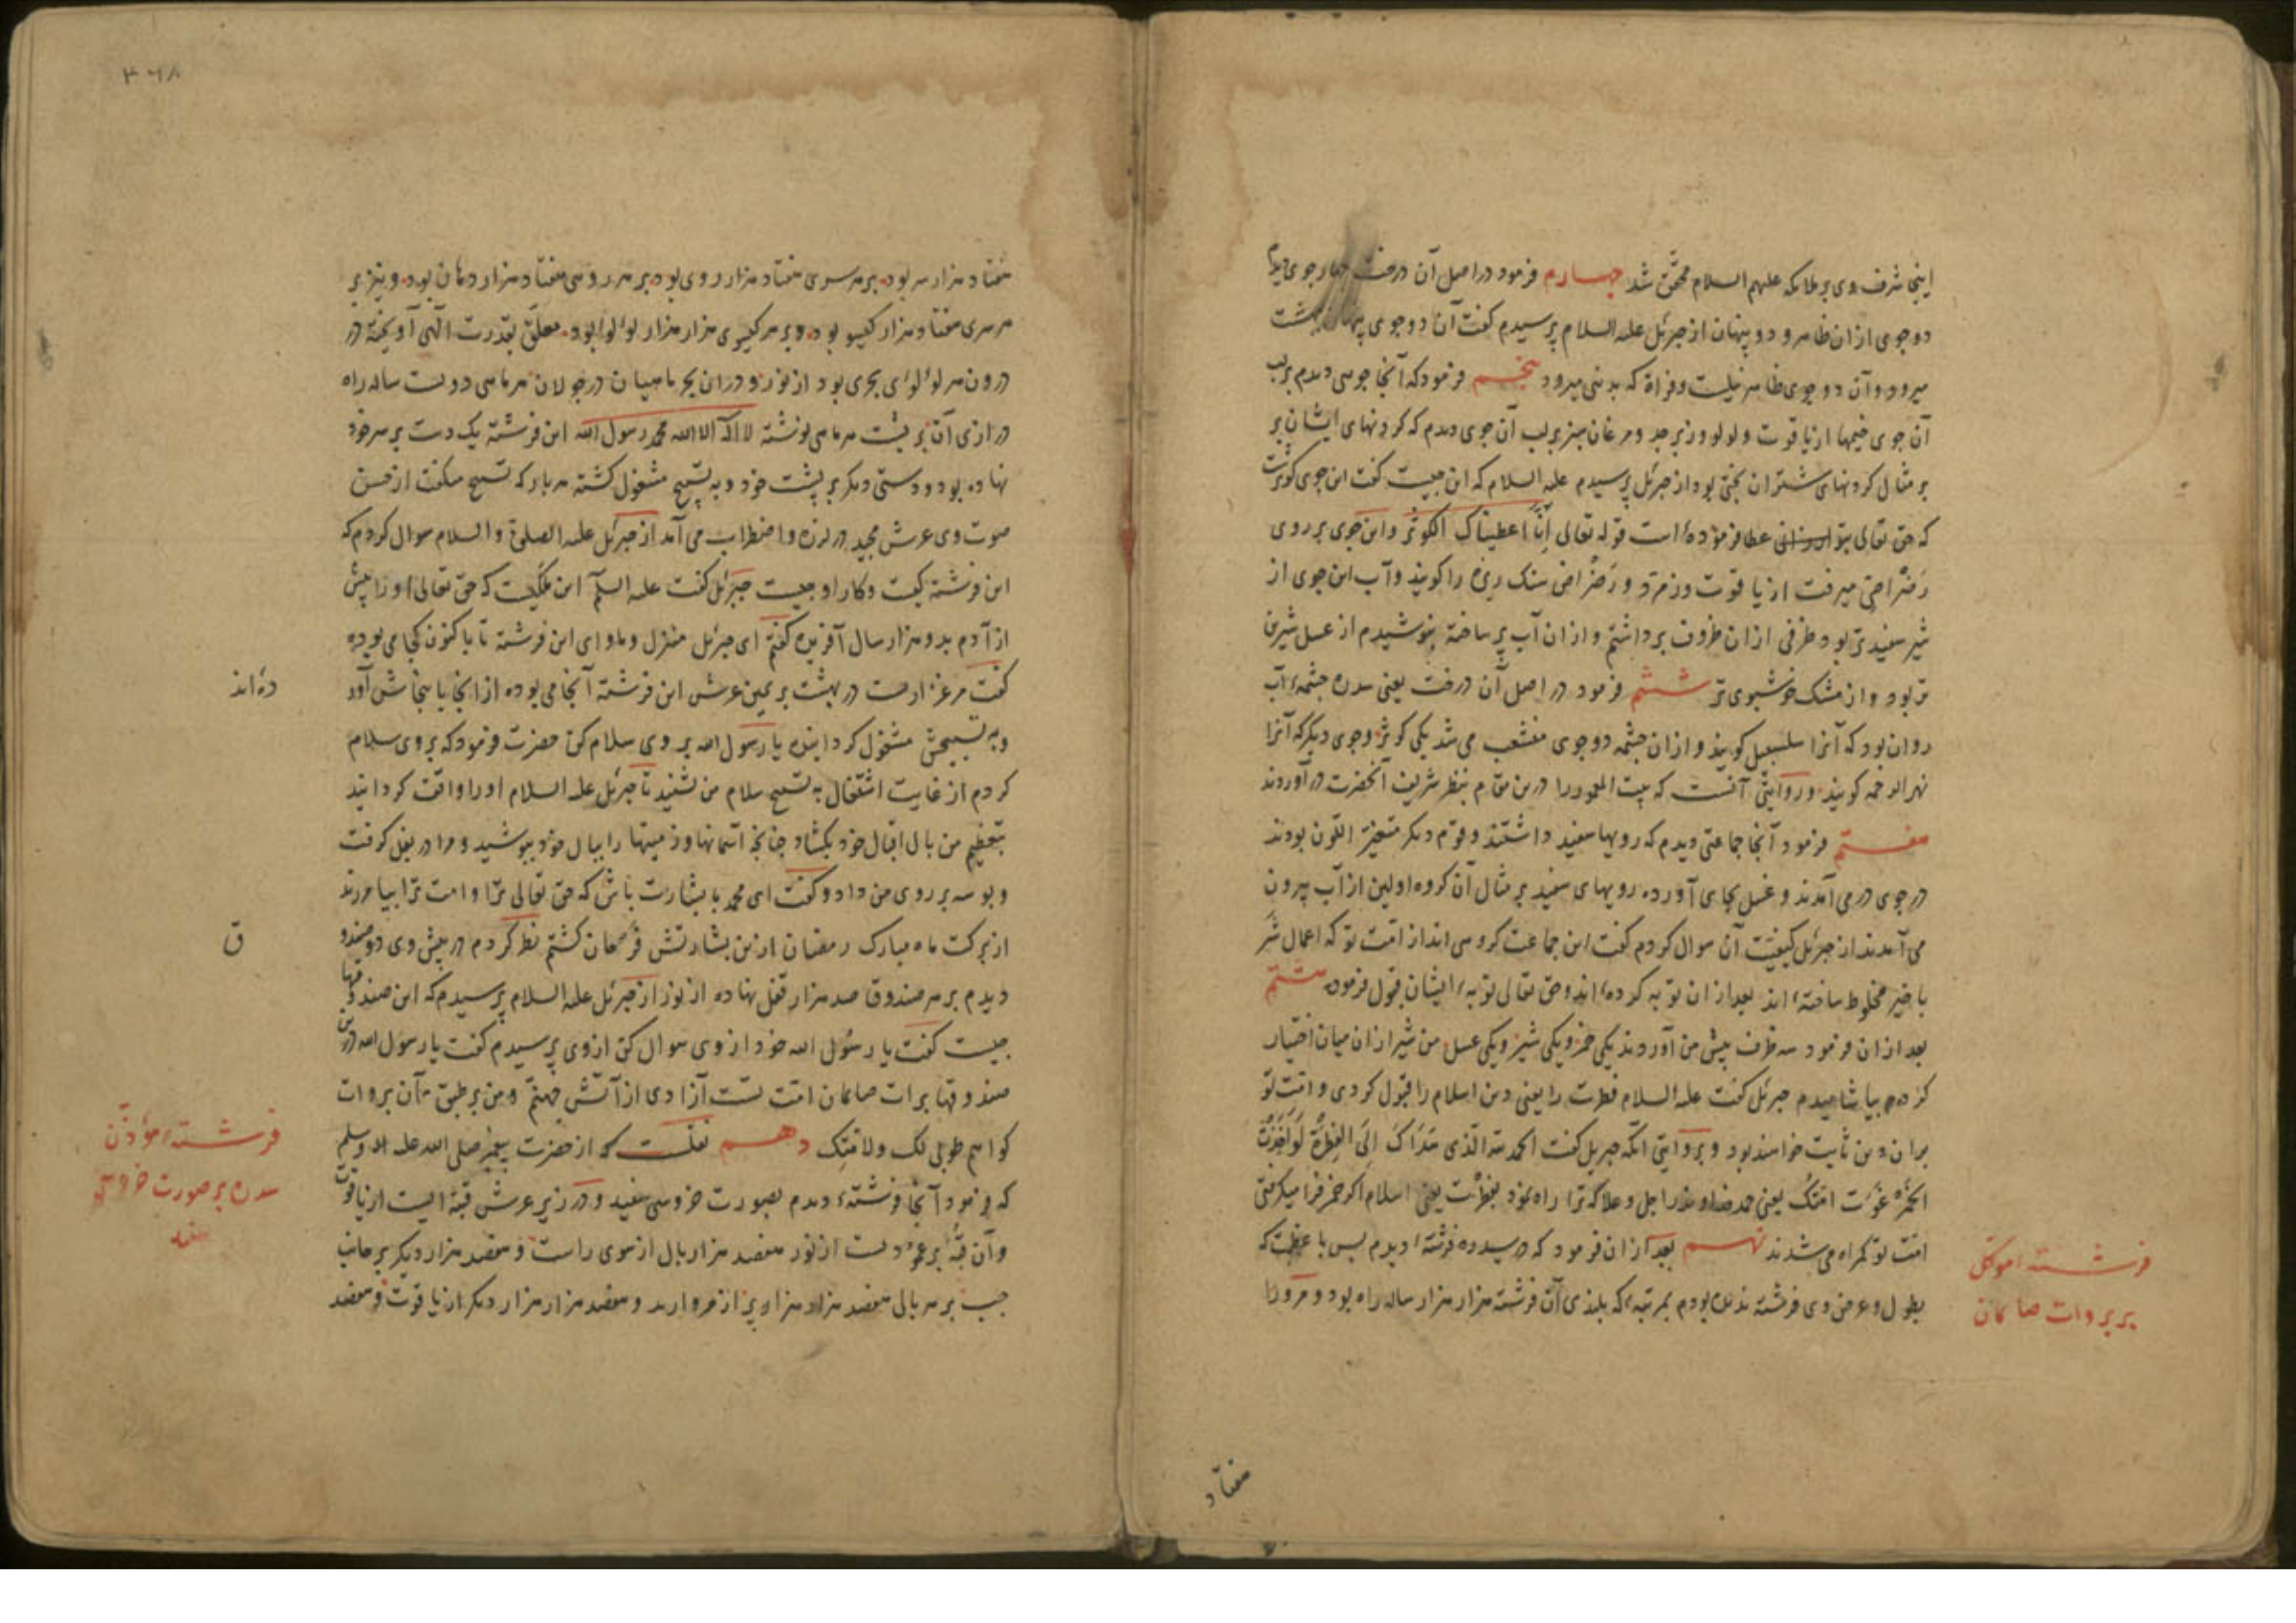 اینجا شرف وی بر ملائکه علیهم السلام محقّق شد چهارم فرمود در اصل آن درخت چهار جوی دیدم
دو جوی از ان ظاهر و دو پنهان از جبرئیل علیه السلام پرسیدم گفت آن دو جوی پنهان به بهشت
میرود و آن دو جوی ظاهر نیلست و فراة که بدنیی میرود پنجم فرمود که آنجا جویی دیدم بر لب
آن جوی خیمها از یاقوت و لولو و زبرجد و مرغان سبز بر لب آن جوی دیدم که گردنهای ایشان بر
بر مثال گردنهای شتران بختی بود از جبرئیل پرسیدم علیه السلام که این چیست گفت این جوی کوثرست
که حق تعالی بتو ارزانی عطا فرموده است قوله تعالی اِنّا اعطیناک الکوثر و این جوی بر روی
رَضْراضی میرفت از یاقوت و زمرّد و رَضْراض سنک ریزه را کویند و آب این جوی از
شیر سفیدتر بود ظرفی از ان ظروف برداشتم و از ان آب پر ساخته بنوشیدم از عسل شیرین
تر بود و از مشک خوشبوی تر ششم فرمود در اصل آن درخت یعنی سدره چشمهٔ آب
روان بود که آنرا سلسبیل کویند و از ان چشمه دو جوی منشعب می شد یکی کوثر و جوی دیکر که آنرا
نهر الرحمه کویند و روایتی آنست که بیت المعمور را درین مقام بنظر شریف آنحضرت در آوردند
هفتم فرمود آنجا جماعتی دیدم که رویها سفید داشتند و قوم دیکر متغیّر اللّون بودند
در جوی در می آمدند و غسل بجای آورده رویهای سفید بر مثال آن کروه اولین از آب بیرون
می آمدند از جبرئیل کیفیّت آن سوال کردم گفت این جماعت کروهی اند از امّت تو که اعمال شر
با خیر مخلوط ساخته اند بعد از ان توبه کرده اند و حق تعالی توبهٔ ایشان قبول فرمود هشتم
بعد از ان فرمود سه ظرف پیش من آوردند یکی خمر و یکی شیر و یکی عسل من شیر از ان میان اختیار
کرده بیاشامیدم جبرئیل گفت علیه السلام فطرت را یعنی دین اسلام را قبول کردی و امّت تو
بران دین ثابت خواهند بود و بروایتی آنکه جبریل گفت الحمد لله الّذی هَدَاکَ اِلَی الفِطْرَةِ لَوْ اَخَذْتَ
الخَمْرَ غَوَت امّتکَ یعنی حمد خداوند را جل و علا که ترا راه نمود بفطرت یعنی اسلام اکر خمر فرا میکرفتی
امّت تو کمراه می شدند نهم بعد از ان فرمود که در سدره فرشتهٔ دیدم بس با عظمت که
بطول و عرض وی فرشته ندیده بودم بمرتبهٔ که بلندی آن فرشته هزار هزار ساله راه بود و مرورا
فرشتهٔ موکّل
بر بروات صائمان
هفتاد
۳۶۸
هفتاد هزار سر بود بر هر سری هفتاد هزار روی بود بر هر رویی هفتاد هزار دهان بود و نیز بر
هر سری هفتاد هزار کیسو بود و بر هر کیسوی هزار هزار لؤلؤ بود معلّق بقدرت الهی آویخته در
درون هر لؤلؤی بحری بود از نور و دران بحر ماهیان در جولان هر ماهی دویست ساله راه
درازی آن بر پشت هر ماهی نوشته لا اله الا الله محمد رسول الله این فرشته یک دست بر سر خود
نهاده بود و دستی دیکر بر پشت خود و به تسبیح مشغول کشته هر بار که تسبیح میگفت از حسن
صوت وی عرش مجید در لرزه و اضطراب می آمد از جبرئیل علیه الصلوة و السلام سوال کردم که
این فرشته کیست و کار او چیست جبرئیل گفت علیه السلام این ملکیست که حق تعالی او را پیش
از آدم بدو هزار سال آفریده گفتم ای جبرئیل منزل و ماوای این فرشته تا باکنون کجا می بوده
گفت مرغزاریست در بهشت بر یمین عرش این فرشته آنجا می بوده از انجا باینجاش آورد
ده اند
و به تسبیحش مشغول کردانیده یا رسول الله بر وی سلام کن حضرت فرمود که بروی سلام
کردم از غایت اشتغال به تسبیح سلام من نشنید تا جبرئیل علیه السلام او را واقف کردانید
بتعظیم من بال اقبال خود بکشاد چنانچه آسمانها و زمینها را ببال خود بپوشید و مرا در بغل کرفت
و بوسه بر روی من داد و گفت ای محمد با بشارت باش که حق تعالی ترا و امت ترا بیامرزید
از برکت ماه مبارک رمضان ازین بشارتش فرحان کشتم نظر کردم در پیش وی دو صندو
ق
دیدم بر هر صندوق صد هزار قفل نهاده از نور از جبرئیل علیه السلام پرسیدم که این صندوقها
چیست گفت یا رسول الله خود از وی سوال کن از وی پرسیدم گفت یا رسول الله درین
صندوقها برات صائمان امّت تست آزادی از آتش جهنّم و من بر طبق آن بروات
کواهم طوبی لک ولامّتِک دهم نقلست که از حضرت پیغمبر صلی الله علیه و اله وسلم
که فرمود آنجا فرشتهٔ دیدم بصورت خروسی سفید و در زیر عرش قبّه ایست از یاقوت
فرشتهٔ مؤذّن
سدره بر صورت خروس
سفید
و آن قبّه بر عمودیست از نور هفصد هزار بال از سوی راست و هفصد هزار دیکر بر جانب
چپ بر هر بالی هفصد هزار هزار پر از مروارید و هفصد هزار هزار دیکر از یاقوت و هفصد